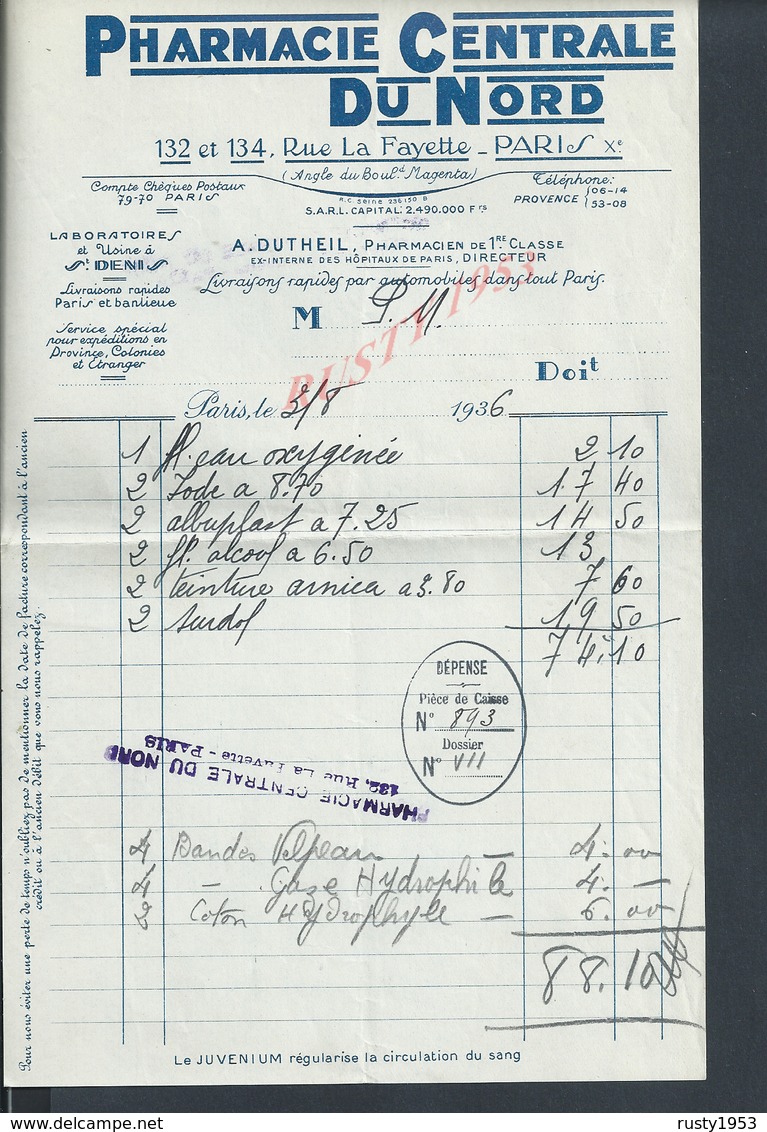 PHARMACIE CENTRALE
DU NORD
132 et 134, Rue La Fayette _ PARIS Xe.
(Angle du Boul.d Magenta)
Compte Chèques Postaux
79-70 PARIS
R.C. Seine 236150 B
S.A.R.L. CAPITAL: 2.490.000 Frs
Téléphone:
PROVENCE { 06-14
53-08
LABORATOIRES
et Usine à
St DENIS
Livraisons rapides
Paris et banlieue
Service spécial
pour expéditions en
Province, Colonies
et Etranger
A. DUTHEIL, PHARMACIEN DE 1RE CLASSE
EX-INTERNE DES HÔPITAUX DE PARIS, DIRECTEUR
Livraisons rapides par automobiles dans tout Paris.
M P. M.
RUSTY 1953
Doit
Paris, le 3/8 1936
1 fl. eau oxyginée 2 10
2 Iode a 8.70 17 40
2 albuplast a 7.25 14 50
2 fl. alcool a 6.50 13
2 teinture arnica a 3.80 7 60
2 surdol 19 50
74.10
DÉPENSE
Pièce de Caisse
N° 893
Dossier
N° VII
PHARMACIE CENTRALE DU NORD
132, Rue La Fayette - PARIS
4 Bandes Velpeau — 4.00
4 — Gaze Hydrophile 4. —
2 Coton Hydrophyle — 6.00
88.10
Pour nous éviter une perte de temps n'oubliez pas de mentionner la date de facture correspondant à l'ancien
crédit ou à l'ancien débit que vous nous rappelez.
Le JUVENIUM régularise la circulation du sang
delcampe.net
rusty1953